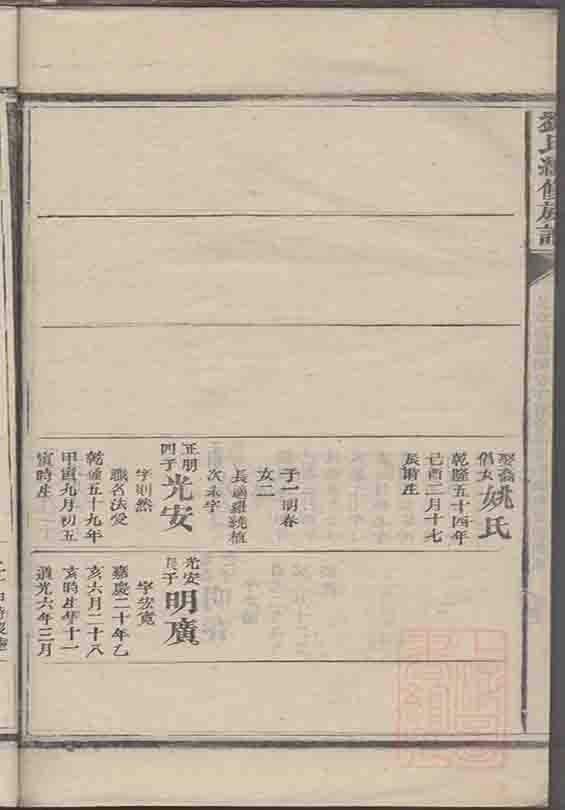 劉氏續修族譜
娶喬
侶女
姚氏
乾隆五十四年
己酉三月十七
辰時生
子一明春
女二
長適羅統植
次未字
正朋
四子
光安
字則然
職名法受
乾隆五十九年
甲寅九月初五
寅時生
光安
長子
明廣
字宏寬
嘉慶二十年乙
亥六月二十八
亥時生年十一
道光六年三月